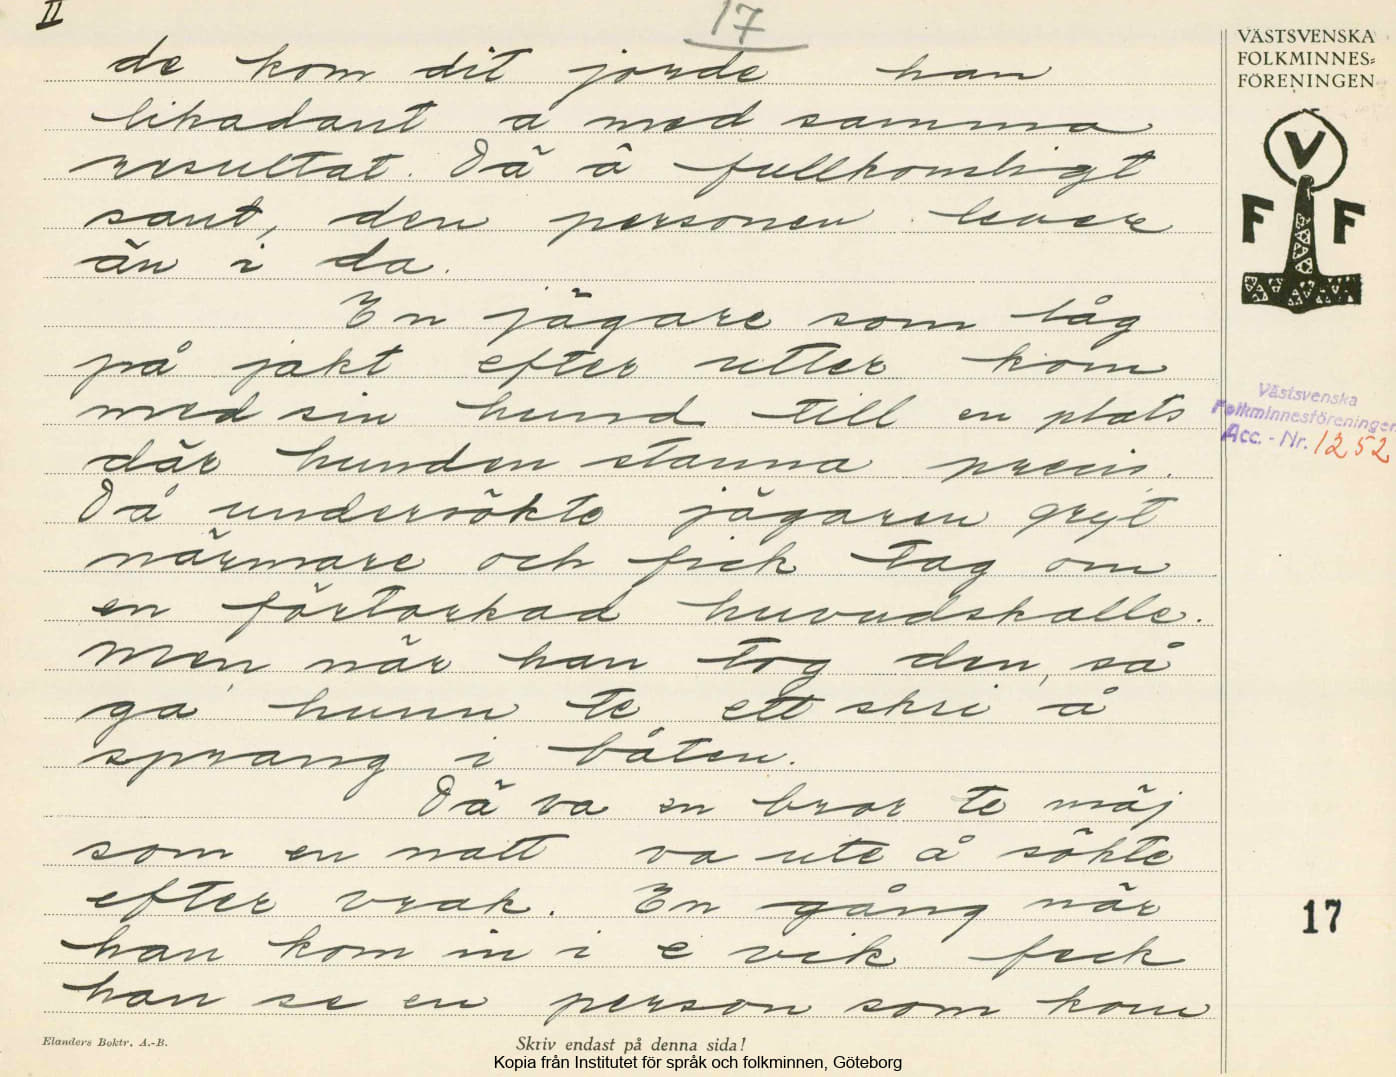 II
17
VÄSTSVENSKA
FOLKMINNES=
FÖRENINGEN
V
F F
de kom dit jorde han
likadant a med samma
resultat. Dä ä fullkomligt
sant, den personen lever
än i da.
En jägare som låg
på jakt efter utter kom
med sin hund till en plats
där hunden stanna precis.
Då undersökte jägaren gryt
närmare och fick tag om
en förtorkad huvudskalle.
Men när han tog den, så
ga hunn te ett skri å
sprang i båten.
Dä va en bror te mäj
som en natt va ute å sökte
efter vrak. En gång när
han kom in i e vik feck
han se en person som kom
Västsvenska
Folkminnesföreningen
Acc. - Nr. 1252
17
Elanders Boktr. A.-B.
Skriv endast på denna sida!
Kopia från Institutet för språk och folkminnen, Göteborg